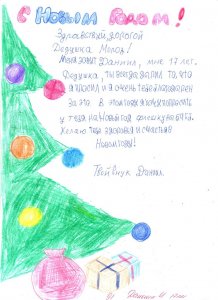 С Новым Годом!
Здравствуй дорогой
Дедушка Мороз!
Меня зовут Даниил, мне 17 лет.
Дедушка, ты всегда дарил то, что
я просил и я очень тебе благодарен
за это в этом году я хочу попросить
у тебя на Новый год
Желаю тебе здоровья и счастья в
Новом году!
Твой внук Даниил.
От